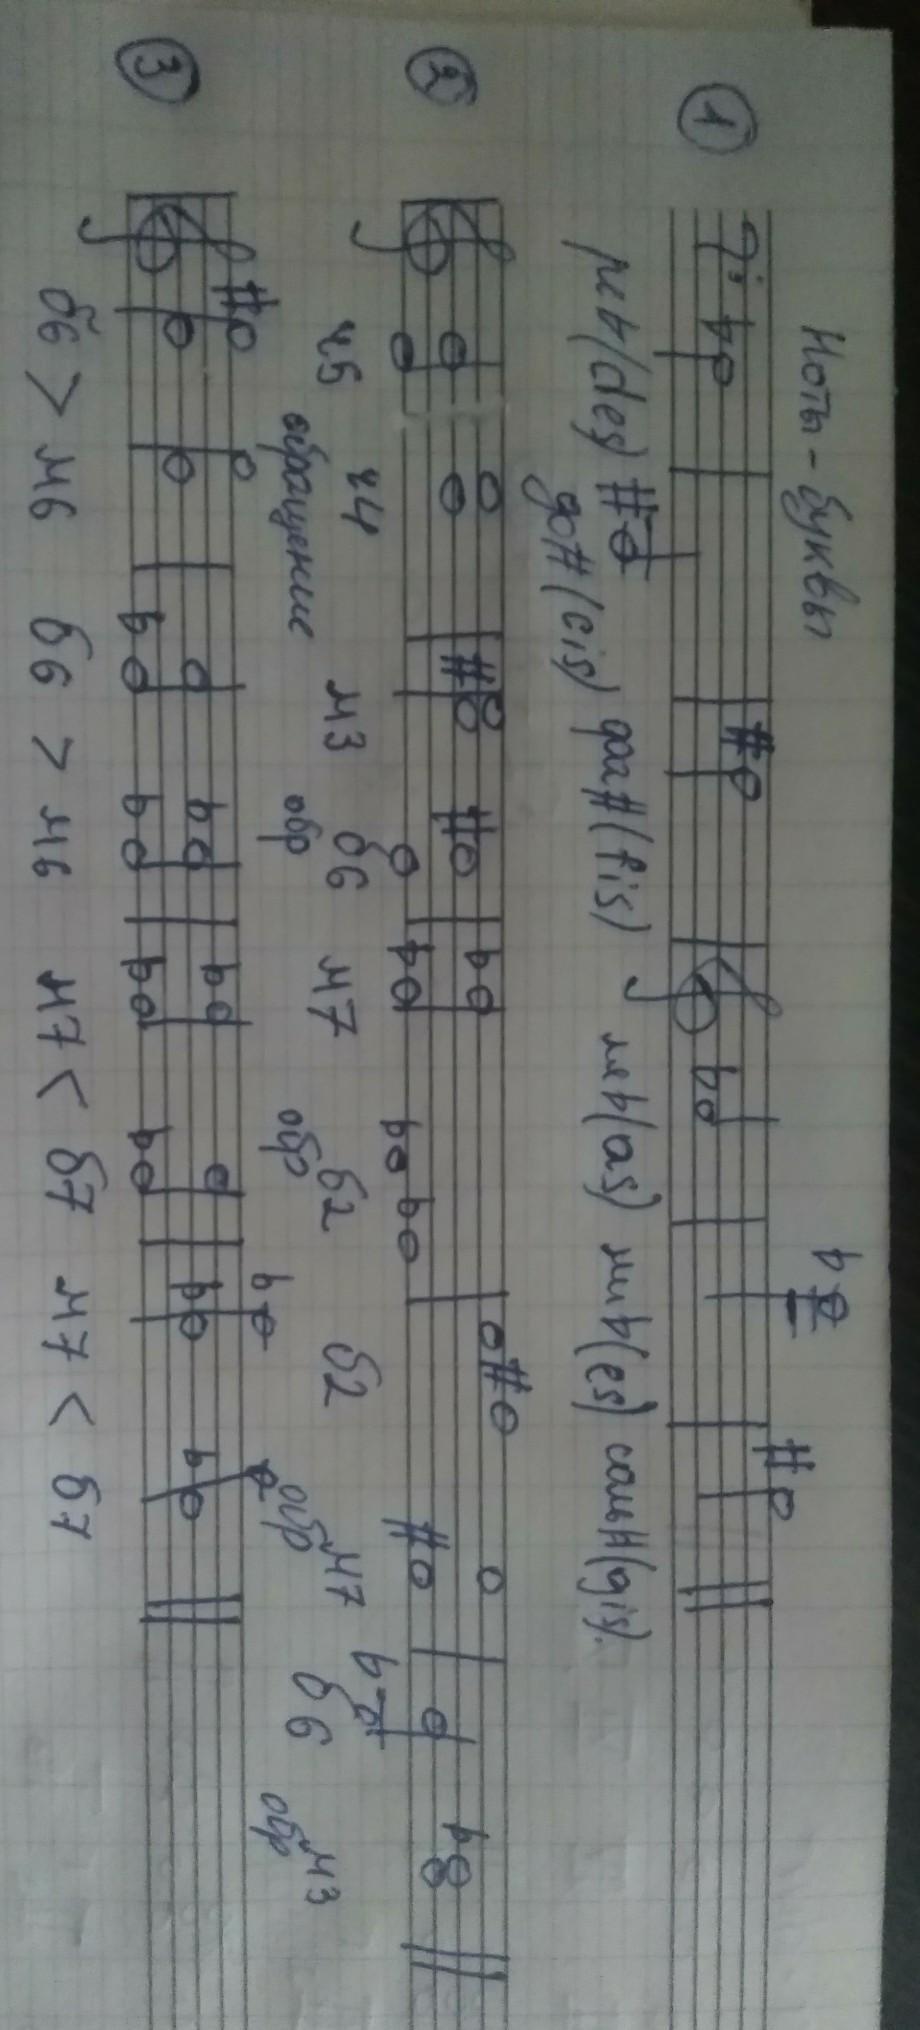 Ноты - буквы
①
реb(des) до#(cis) фа#(fis) ляb(as) миb(es) соль#(gis).
②
ч5 ч4 м3 б6 м7 б2 б2 м7 б6 м3
обращение обр обр обр обр
③
б6 > м6 б6 > м6 м7 < б7 м7 < б7